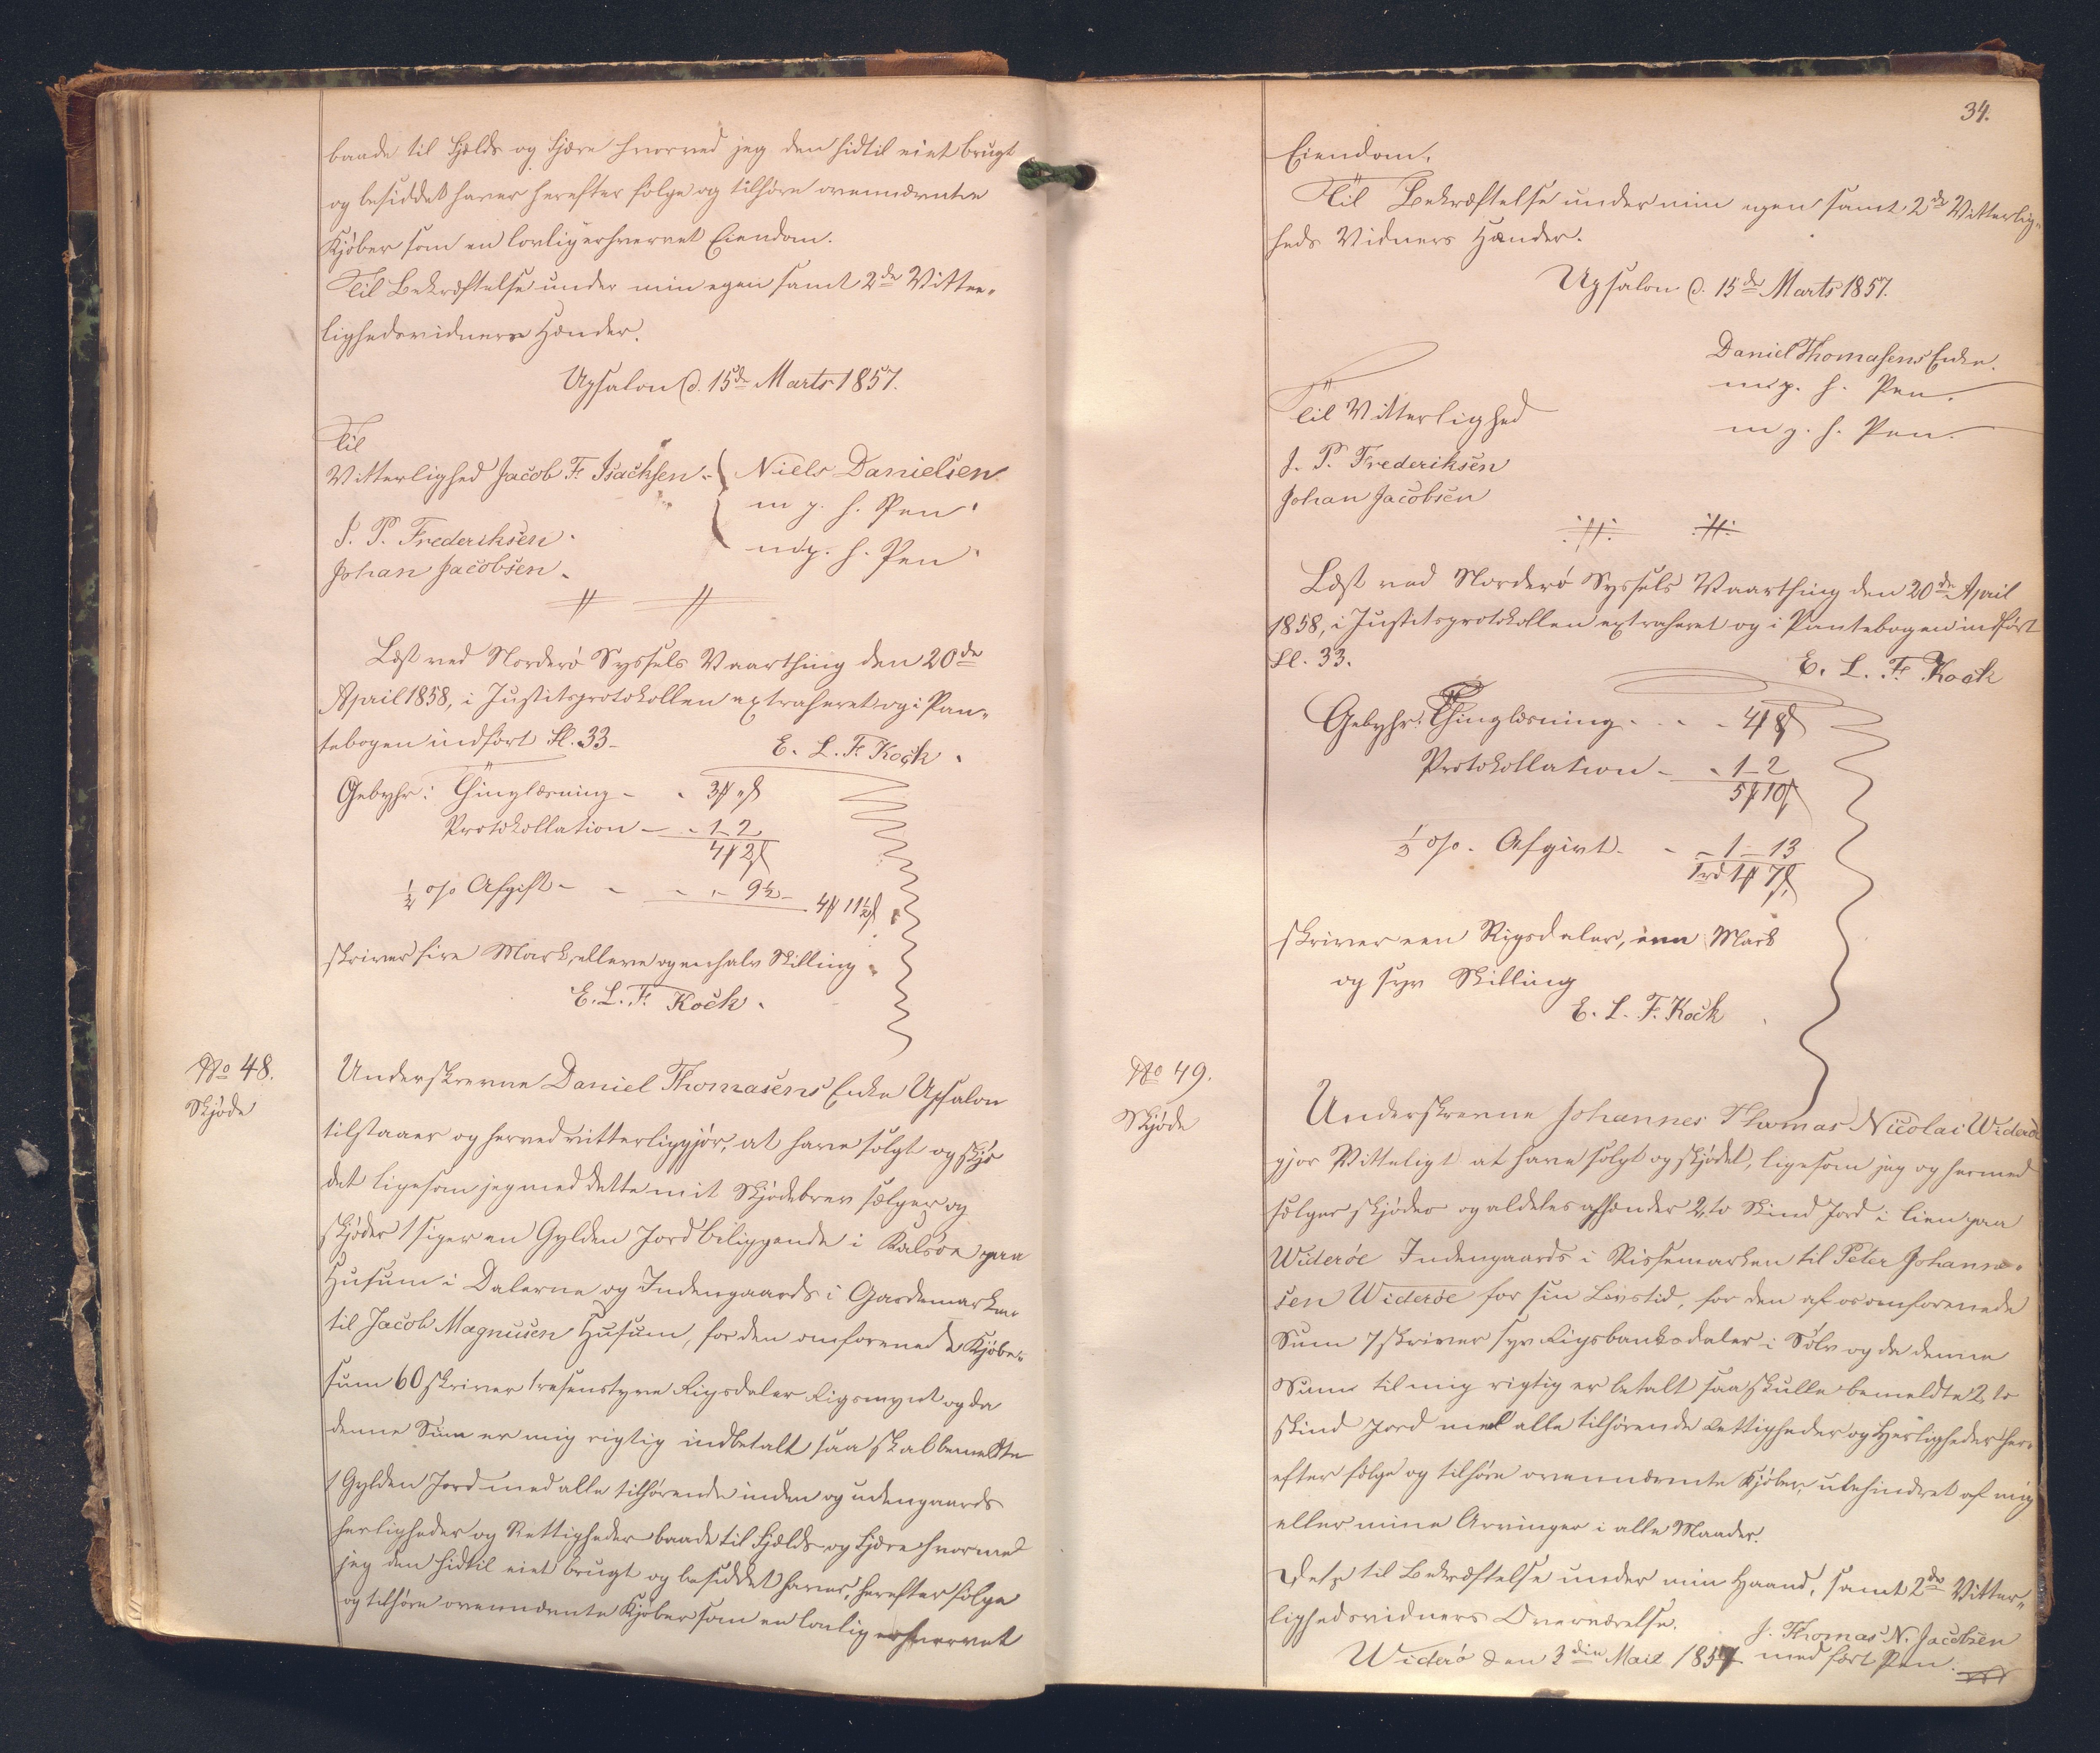 baade til Fjelds og Fjære hvorved jeg den hidtil eiet brugt
og besiddet haver herefter følge og tilhøre ovennævnte
Kjøber som en lovlig erhvervet Eiendom.
Til Bekræftelse under min egen samt 2de Vitter-
lighedsvidners Hænder.
Upsalon d. 15de Marts 1857.
Til
Vitterlighed Jacob F. Isachsen. Niels Danielsen
m p. h. Pen.
J. P. Frederiksen.
m p. h. Pen.
Johan Jacobsen.
Læst ved Norderø Syssels Vaarthing den 20de
April 1858, i Justitsprotokollen extraheret og i Pan-
tebogen indført Fl. 33.
E. L. F. Kock.
Gebyhr: Thinglæsning - - 3 ß
Protokollation - - 1 - 2
4 2 ß
½ o/o Afgift - - - - 9½ - 4 11½ ß
skriver fire Mark, elleve og en halv Skilling
E. L. F. Kock.
No 48.
Skjøde
Underskrevne Daniel Thomasens Enke Upsalon
tilstaaer og herved vitterliggjør, at have solgt og skjø
det ligesom jeg med dette mit Skjødebrev sælger og
skjøder 1 siger en Gylden Jord beliggende i Kalsøe paa
Husum i Dalerne og Indengaards i Gardemarken
til Jacob Magnusen Husum, for den omforenede Kjøbe-
sum 60 skriver tresenstyve Rigsdaler Rigsmynt og da
denne Sum er mig rigtig indbetalt saa skal bemeldte
1 Gylden Jord med alle tilhørende inden og udengaards
herligheder og Rettigheder baade til Fjelds og Fjære hvormed
jeg den hidtil eiet brugt og besiddet haver, herefter følge
og tilhøre ovennævnte Kjøber som en lovlig erhvervet
34.
Eiendom.
Til Bekræftelse under min egen samt 2de Vitterlig-
heds Vidners Hænder.
Upsalon d. 15de Marts 1857.
Daniel Thomasens Enke.
m p. h. Pen.
Til Vitterlighed
m p. h. Pen.
J. P. Frederiksen
Johan Jacobsen
Læst ved Norderø Syssels Vaarthing den 20de April
1858, i Justitsprotokollen extraheret og i Pantebogen indført
Fl. 33.
E. L. F. Kock
Gebyhr: Thinglæsning - - - 4 8 ß
Protokollation - - 1 - 2
5 10 ß
½ o/o. Afgivt - - - 1 - 13
1 rd 1 7 ß
skriver een Rigsdaler, een Mark
og syv Skilling
E. L. F. Kock
No 49.
Skjøde
Underskrevne Johannes Thomas Nicolai Widerø
gjør Vitteligt at have solgt og skjødet, ligesom jeg og hermed
sælger skjøder og aldeles afhænder 2, to Skind Jord i Lien paa
Widerøe Indengaards i Rissemarken til Peter Johanne-
sen Widerøe for sin Livstid, for den af os omforenede
Sum 7 skriver syv Rigsbanksdaler i Sølv og da denne
Sum til mig rigtig er betalt saa skulle bemeldte 2, to
skind Jord med alle tilhørende Rettigheder og Herligheder her-
efter følge og tilhøre ovennævnte Kjøber, ubehindret af mig
eller mine Arvinger i alle Maader.
Dets til Bekræftelse under min Haand, samt 2de Vitter-
lighedsvidners Overværelse.
J. Thomas N. Jacobsen
Widerø den 3die Mai 1857 med ført Pen.